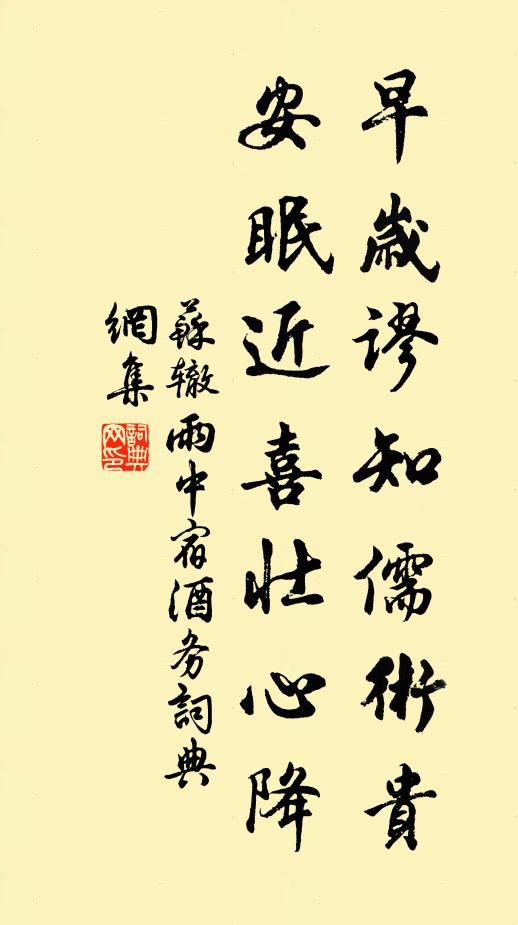 早歲謬知儒術貴
安眠近喜壯心降
蘇辙雨中宿酒务詞典
網集
詞典
网印